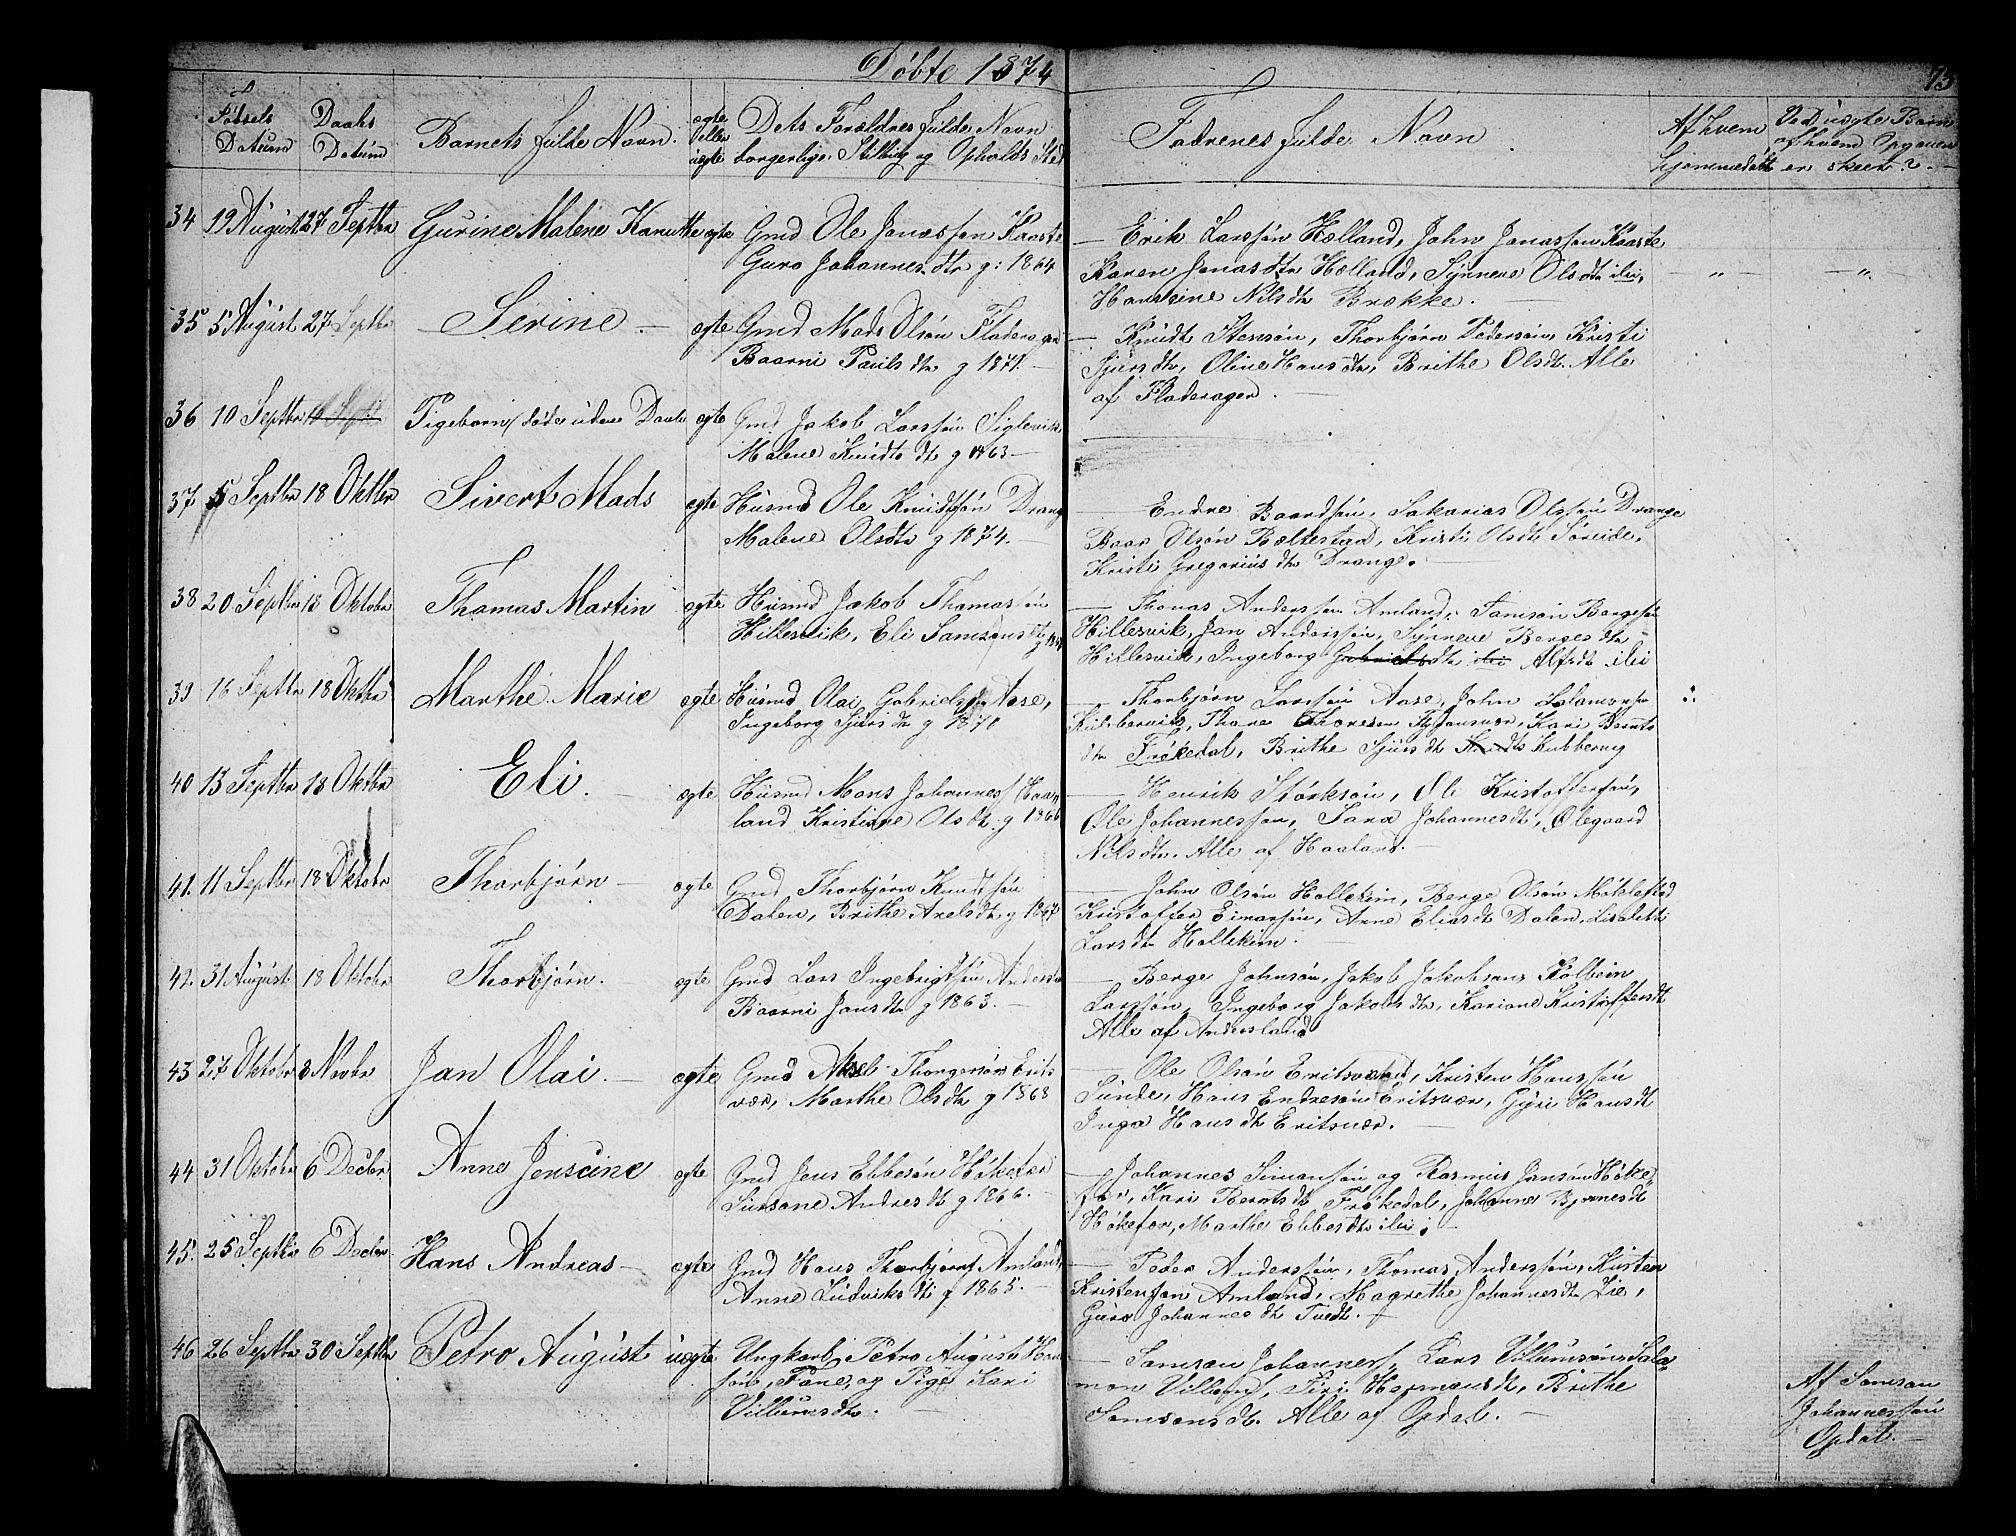 Døbte 1874
75
Fødsels Datum
Daabs Datum
Barnets fulde Navn.
ægte eller uægte
Dets Forældres fulde Navn borgerlige Stilling og Opholds Sted
Fadrenes fulde Navn
Af hvem hjemmedøbt
Ved uægte Barn af hvem Opgaven er skeet?
34 19 August 27 Septbr Gurine Malene Kanutte ægte Gmd Ole Jonassøn Kaaste
Guro Johannesdtr g: 1864
— Erik Larssøn Hælland, John Jonassøn Kaaste
Karen Jonasdtr Hælland, Synneve Olsdtr ibi,
Hansine Nilsdtr Brække.
— „ — — „ —
35 5 August 27 Septbr Serine — ægte Gmd Mads Olsøn Fladerager
Baarni Paulsdtr g 1871. —
— Knudt Stensøn, Thorbjørn Pedersøn, Kristi
Sjursdtr, Oline Hansdtr, Brithe Olsdt. Alle
af Fladerager. —
36 10 Septbr Pigebarn/ døde uden Daab ægte Gmd Jakob Larssøn Siglevik
Malene Knudtsdtr g 1863 —
37 5 Septbr 18 Oktbr Sivert Mads ægte Husmd Ole Knudtsøn Drange
Malene Olsdtr g 1874. —
— Endre Baardsøn, Sakarias Olssøn Drange
Baar Olsøn Bækkestad, Kristi Olsdt Søreide,
Kristi Gregoriusdtr Drange.
38 20 Septbr 18 Oktobr Thomas Martin ægte Husmd Jakob Thomassøn
Hillesvik, Eli Samsonsdtr g
— Thomas Anderssøn Amland, Samson Bergesøn
Hillesvik, Jan Anderssøn, Synneve Bergesdtr
Hillesvik, Ingeborg Gabrielsdtr ibi Alfsdt ibi
39 16 Septbr 18 Oktbr Marthe Marie ægte Husmd Olai Gabrielsen Aase,
Ingeborg Sjursdtr g 1870
— Thorbjørn Larssøn Aase, John Salamonsøn
Kubbervik, Thore Thoresen, Kari Berents
dtr Frøkedal, Brithe Sjursdt Kubbervig
40 13 Septbr 18 Oktbr Eli. — ægte Husmd Mons Johannesf Haa
land Kristiane Olsdtr g 1866
— Henrik Størksøn, Ole Kristoffersøn,
Ole Johannessøn, Sara Johannesdt, Olegaard
Nilsdtr. Alle af Haaland. —
41. 11 Septbr 18 Oktobr Thorbjørn — ægte Gmd Thorbjørn Knudtsøn
Dalen, Brithe Axelsdtr g 1867
— John Olsøn Hallekim, Berge Olsøn Møklestad
Kristoffer Einarsøn, Anne Eliasdt Dalen, Lisabetth
Larsdtr Hallekim. —
42. 31 August 18 Oktobr Thorbjørn. ægte Gmd Lars Ingebrigtsøn Andersland
Baarni Jansdtr g 1863. —
— Berge Johnsøn, Jakob Jakobsøn, Kolbein
Larssøn, Ingeborg Jakobsdtr, Kariane Kristoffersdt
Alle af Andersland
43 27 Oktobr 8 Novbr Jan Olai. — ægte Gmd Aksel Thorgersøn Erits
vær, Marthe Olsdtr g 1868
— Ole Olsøn Eritsvær, Kristen Hanssøn
Sunde, Hans Endresøn Eritsvær, Gyri Hansdt
Inga Hansdt Eritsvær. —
44 31 Oktobr 6 Decbr. Anne Jenseine ægte Gmd Jens Ebbesøn Høkefær
Sursane Andresdt g 1866. —
— Johannes Simonsøn og Rasmus Jansøn Høke
fær, Kari Berntsdt Frøkedal, Johanne Bjørnesdt
Høkefær, Marthe Ebbesdtr ibi; —
45. 25 Septbr 6 Decbr. Hans Andreas — ægte Gmd Hans Thorbjørnf Amland
Anne Ludviksdtr g 1865. —
— Peder Anderssøn, Thomas Anderssøn, Kirsten
Kristensøn Amland, Magrethe Johannesdtr Lie,
Guro Johannesdt Tvedt. —
46 26 Septbr 30 Septbr Petro August uægte Ungkarl Petro August Han
søn, Fane, og Pige Kari
Villumsdtr. —
— Samson Johannesf, Lars Villumsøn, Sala
mon Villumf, Siri Hermansdt, Brithe
Samsonsdt. Alle af Opdal. —
Af Samson
Johannessøn
Opdal. —